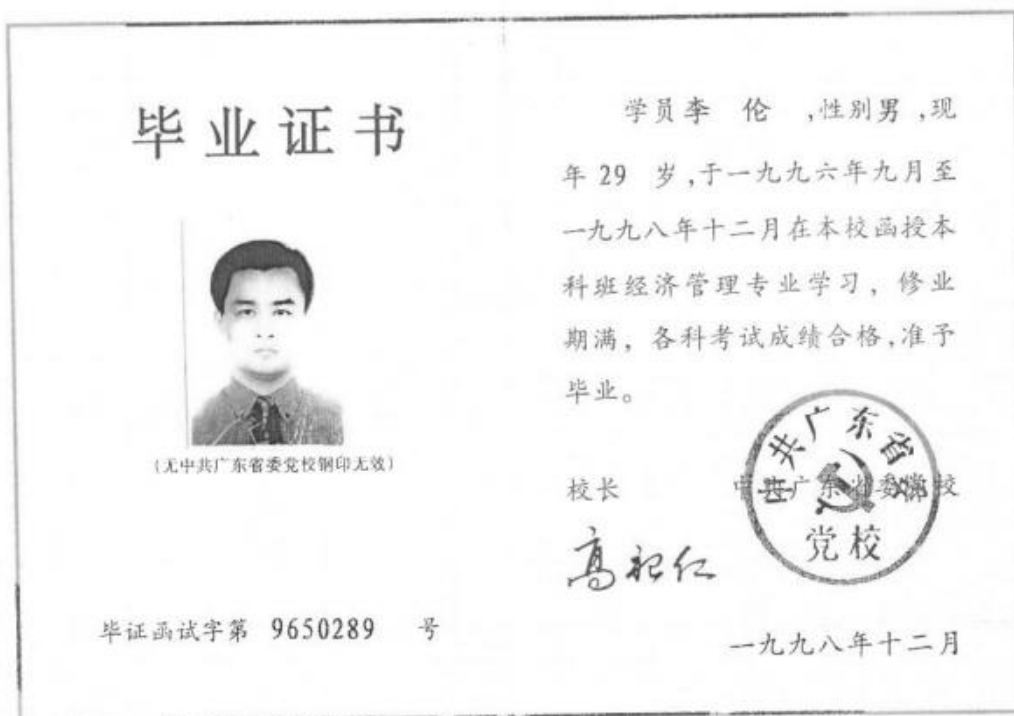 毕业证书
(无中共广东省委党校钢印无效)
毕证函试字第 9650289 号
学员李 伦 ,性别男,现
年 29 岁,于一九九六年九月至
一九九八年十二月在本校函授本
科班经济管理专业学习，修业
期满，各科考试成绩合格,准予
毕业。
校长 中共广东省委党校
高祀仁
中共广东省委
党校
一九九八年十二月